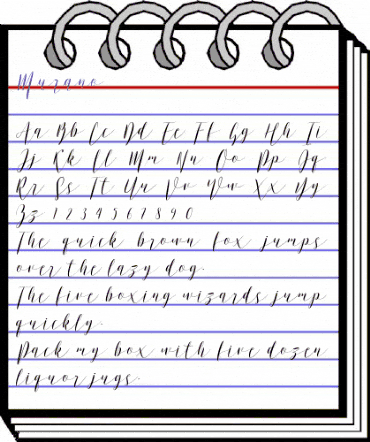 Murano
Aa Bb Cc Dd Ee Ff Gg Hh Ii
Jj Kk Ll Mm Nn Oo Pp Qq
Rr Ss Tt Uu Vv Ww Xx Yy
Zz 1 2 3 4 5 6 7 8 9 0
The quick brown fox jumps
over the lazy dog.
The five boxing wizards jump
quickly.
Pack my box with five dozen
liquor jugs.